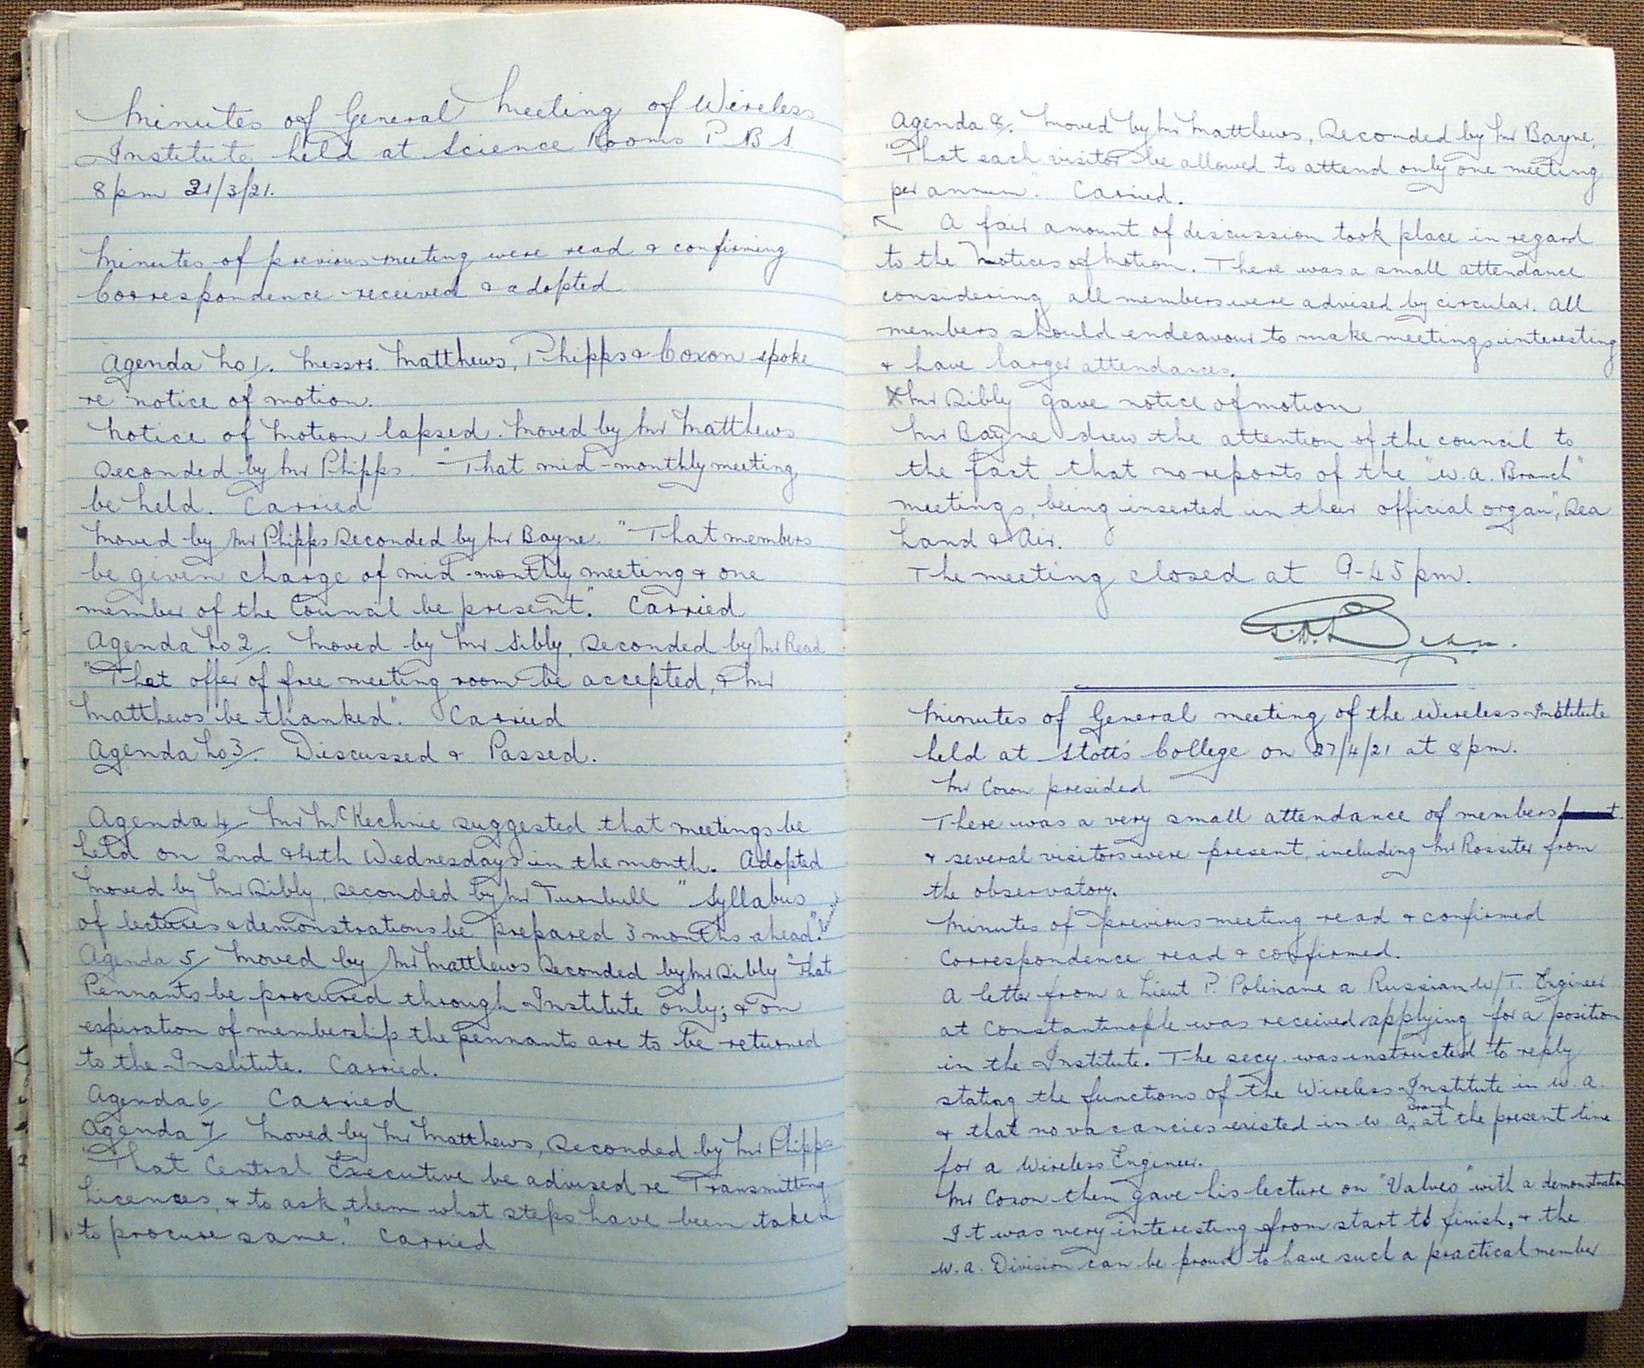 Minutes of General Meeting of Wireless
Institute held at Science Rooms P B S
8pm 21/3/21.
Minutes of previous meeting were read & confirming
Correspondence received & adopted
Agenda No 1. Messrs. Matthews, Phipps & Coxon spoke
re notice of motion.
Notice of Motion lapsed. Moved by Mr Matthews
Seconded by Mr Phipps. "That mid-monthly meeting
be held. Carried
Moved by Mr Phipps Seconded by Mr Bayne. "That members
be given charge of mid-monthly meeting & one
member of the Council be present." Carried
Agenda No 2. Moved by Mr Sibly, Seconded by Mr Read
"That offer of free meeting room be accepted, & Mr
Matthews be thanked". Carried
Agenda No 3. Discussed & Passed.
Agenda 4 Mr McKechnie suggested that meetings be
held on 2nd & 4th Wednesdays in the month. Adopted
Moved by Mr Sibly, seconded by Mr Turnbull "Syllabus
of lectures & demonstrations be prepared 3 months ahead."
Agenda 5 Moved by Mr Matthews Seconded by Mr Sibly "That
Pennants be procured through Institute only; & on
expiration of membership the pennants are to be returned
to the Institute. Carried.
Agenda 6 Carried
Agenda 7 Moved by Mr Matthews, Seconded by Mr Phipps
"That Central Executive be advised re Transmitting
Licences, & to ask them what steps have been taken
to procure same." Carried
Agenda 8. Moved by Mr Matthews, Seconded by Mr Bayne,
"That each visitor be allowed to attend only one meeting
per annum". Carried.
A fair amount of discussion took place in regard
to the Notices of Motion. There was a small attendance
considering all members were advised by circular. All
members should endeavour to make meetings interesting
& have larger attendances.
Mr Sibly gave notice of motion
Mr Bayne drew the attention of the council to
the fact that no reports of the "W.A. Branch"
meetings, being inserted in their official organ, "Sea
Land & Air.
The meeting closed at 9-45pm.
Minutes of General meeting of the Wireless Institute
held at Stotts College on 27/4/21 at 8pm.
Mr Coxon presided
There was a very small attendance of members
& several visitors were present, including Mr Rossiter from
the observatory.
Minutes of previous meeting read & confirmed
Correspondence read & confirmed.
A letter from a Lieut P. Polinane a Russian W/T. Engineer
at Constantinople was received applying for a position
in the Institute. The secy. was instructed to reply
stating the functions of the Wireless Institute in W.A.
& that no vacancies existed in W.A. Branch at the present time
for a Wireless Engineer.
Mr Coxon then gave his lecture on "Valves" with a demonstration
It was very interesting from start to finish, & the
W.A. Division can be proud to have such a practical member